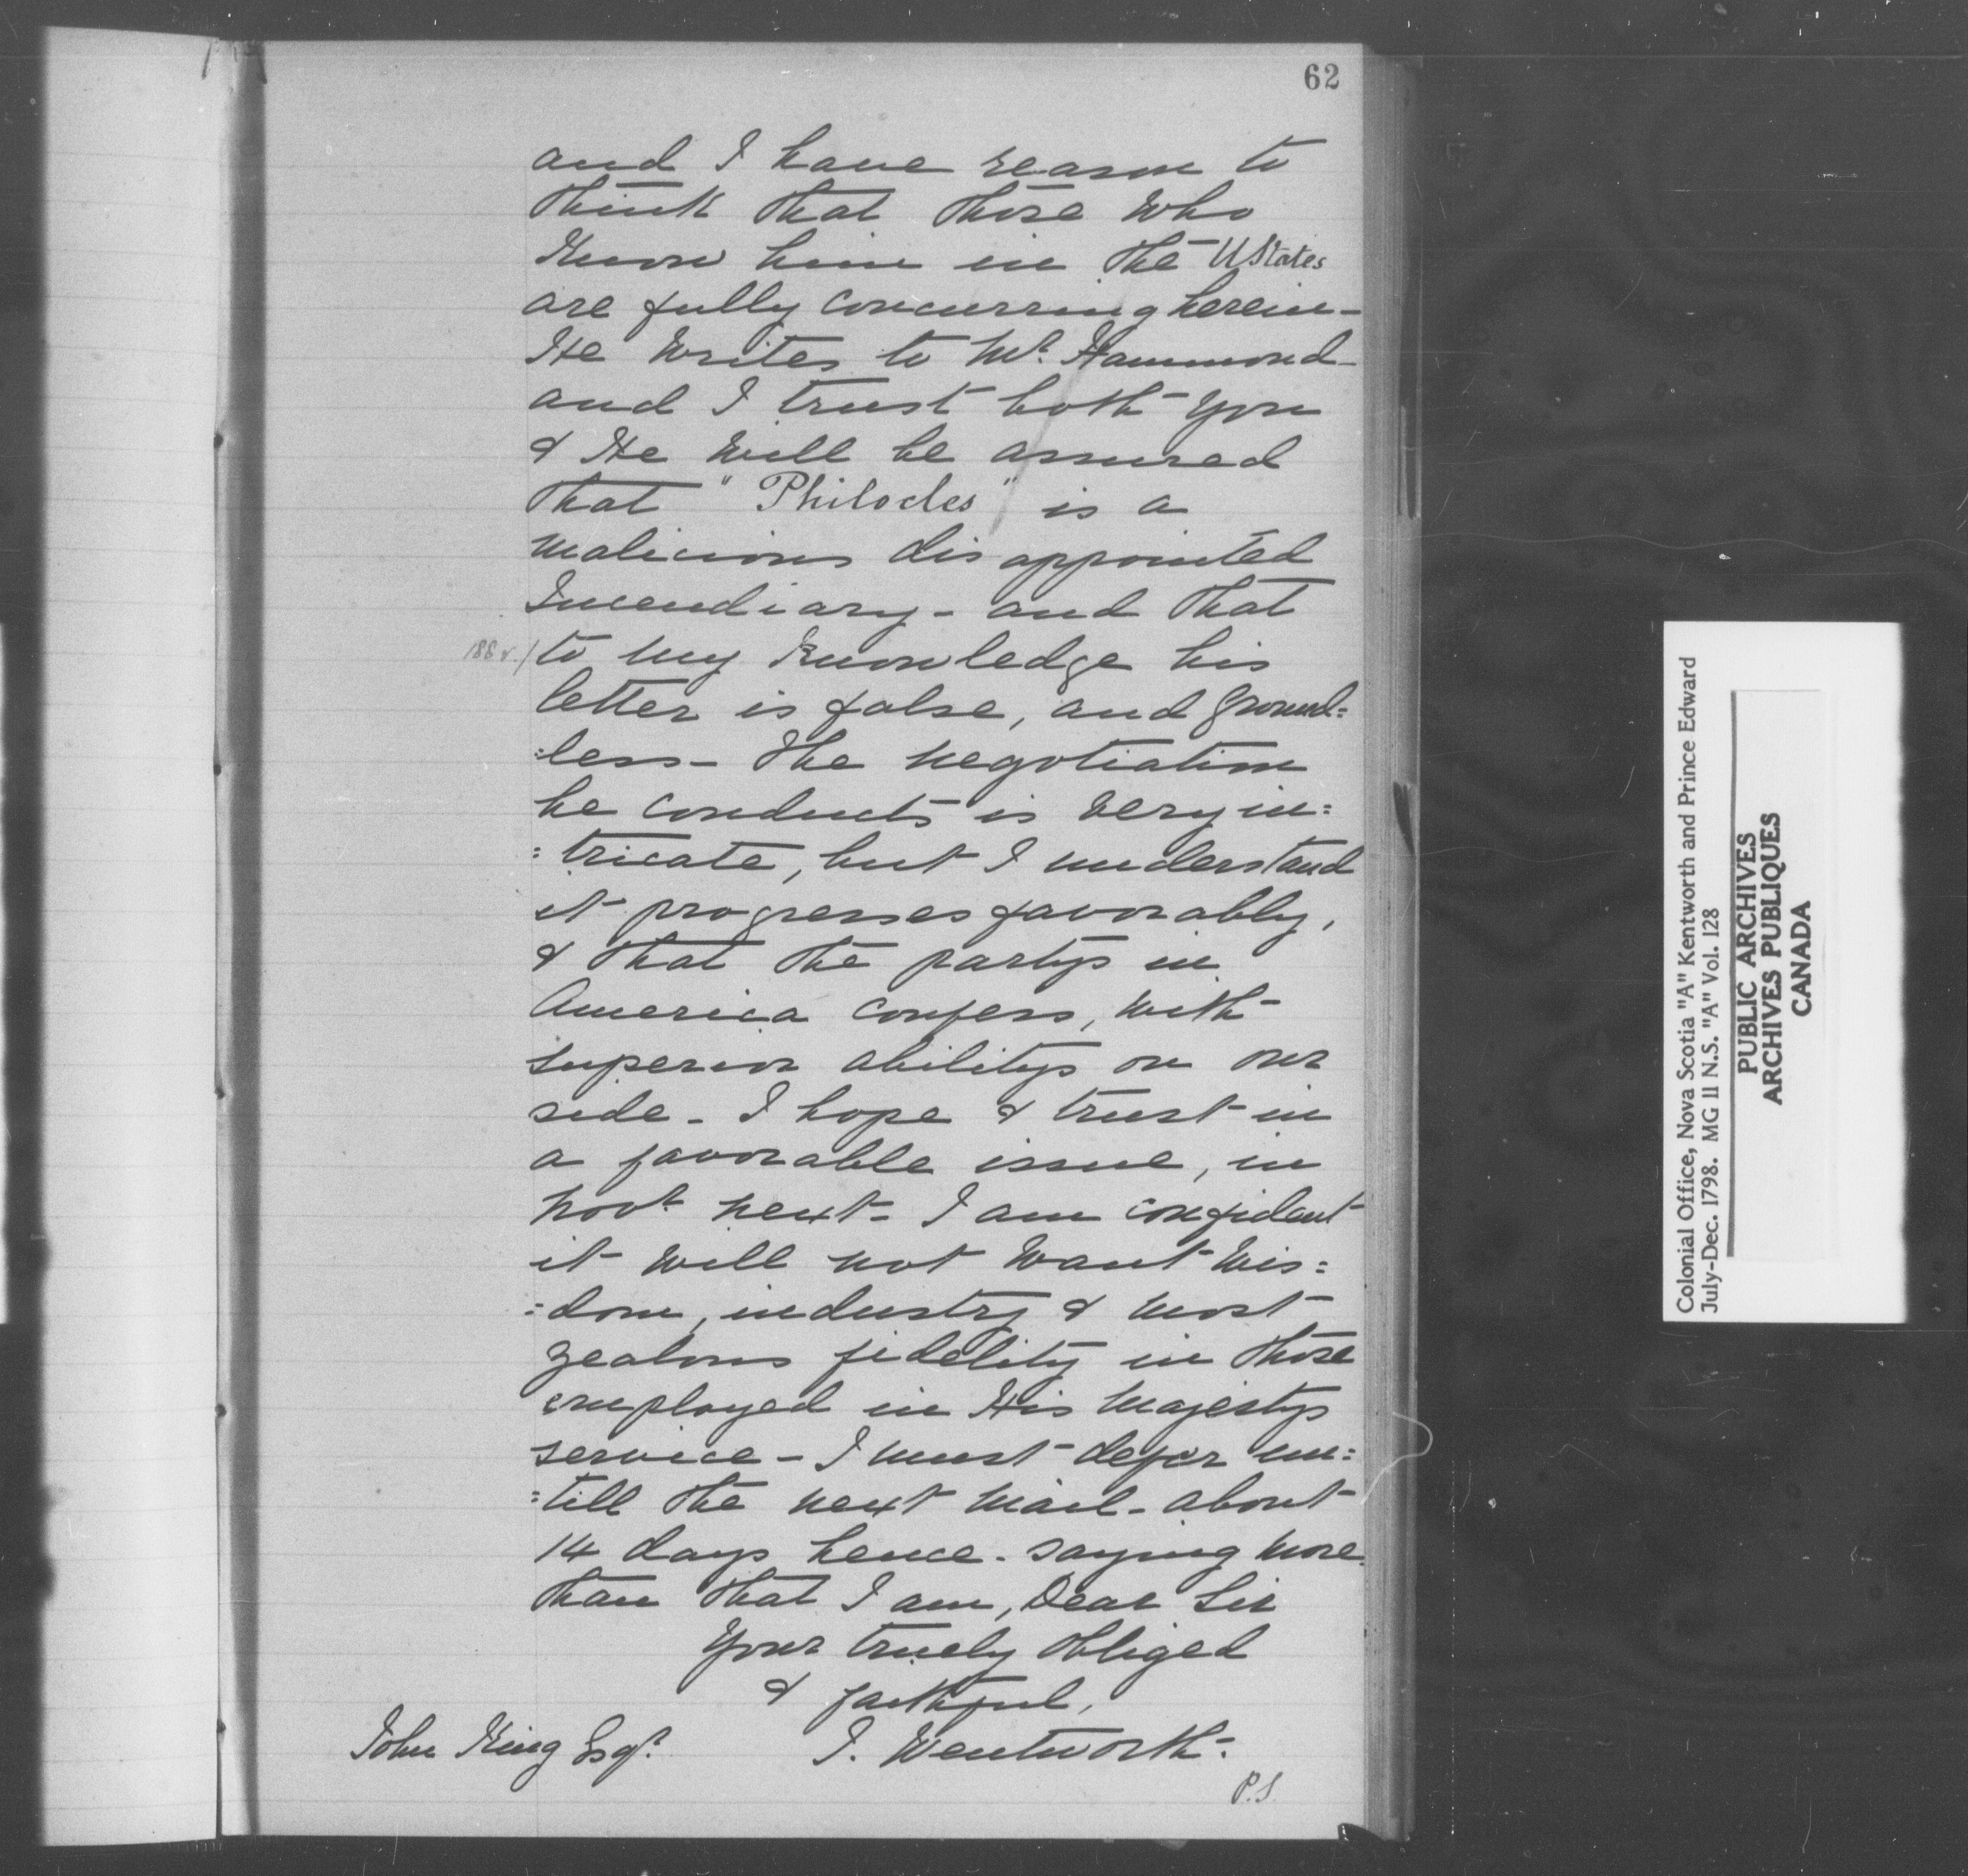 62
and I have reason to
think that those who
know him in the UStates
are fully concurring herein-
He writes to Mr. Hammond-
and I trust both you
& He will be assured
that "Philocles" is a
malicious disappointed
Incendiary - and that
188 v./ to my knowledge his
letter is false, and ground=
=less - The negotiation
he conducts is very in=
=tricate, but I understand
it progresses favorably,
& that the partys in
America confess, with
superior abilitys on our
side - I hope & trust in
a favorable issue, in
Novr. next - I am confident
it will not want wis=
=dom, industry & most
zealous fidelity in those
employed in His Majestys
service - I must defer un=
=till the next mail - about
14 days hence - saying more
than that I am, Dear Sir
Your truely obliged
& faithful,
John King Esqr. J. Wentworth.
P.S.
Colonial Office, Nova Scotia "A" Kentworth and Prince Edward
July-Dec. 1798. MG 11 N.S. "A" Vol. 128
PUBLIC ARCHIVES
ARCHIVES PUBLIQUES
CANADA